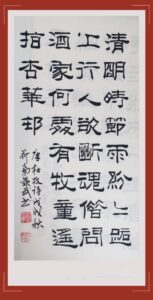 清明時節雨紛〻路
上行人欲斷魂借問
酒家何處有牧童遥
指杏華邨
唐杜牧诗戊戌秋
书